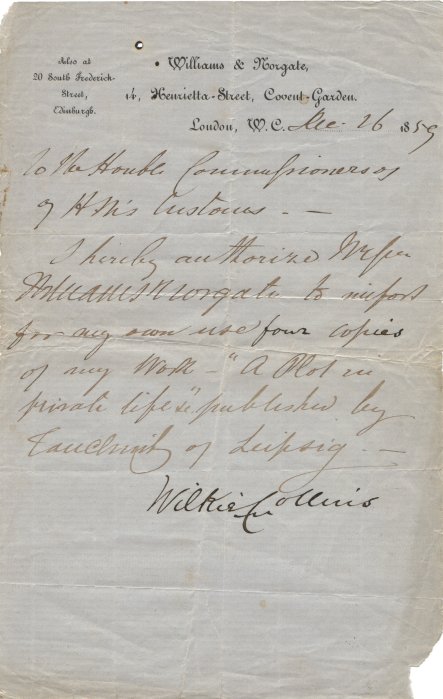 Also at
20 South Frederick-
Street,
Edinburgh.
Williams & Norgate,
14, Henrietta-Street, Covent-Garden.
London, W.C. Dec. 26 1859
To the Honble Commissioners
of H M's Customs. —
I hereby authorize Messrs
Williams & Norgate to import
for my own use four copies
of my Work — "A Plot in
private life &c" published by
Tauchnitz of Leipsig. —
Wilkie Collins